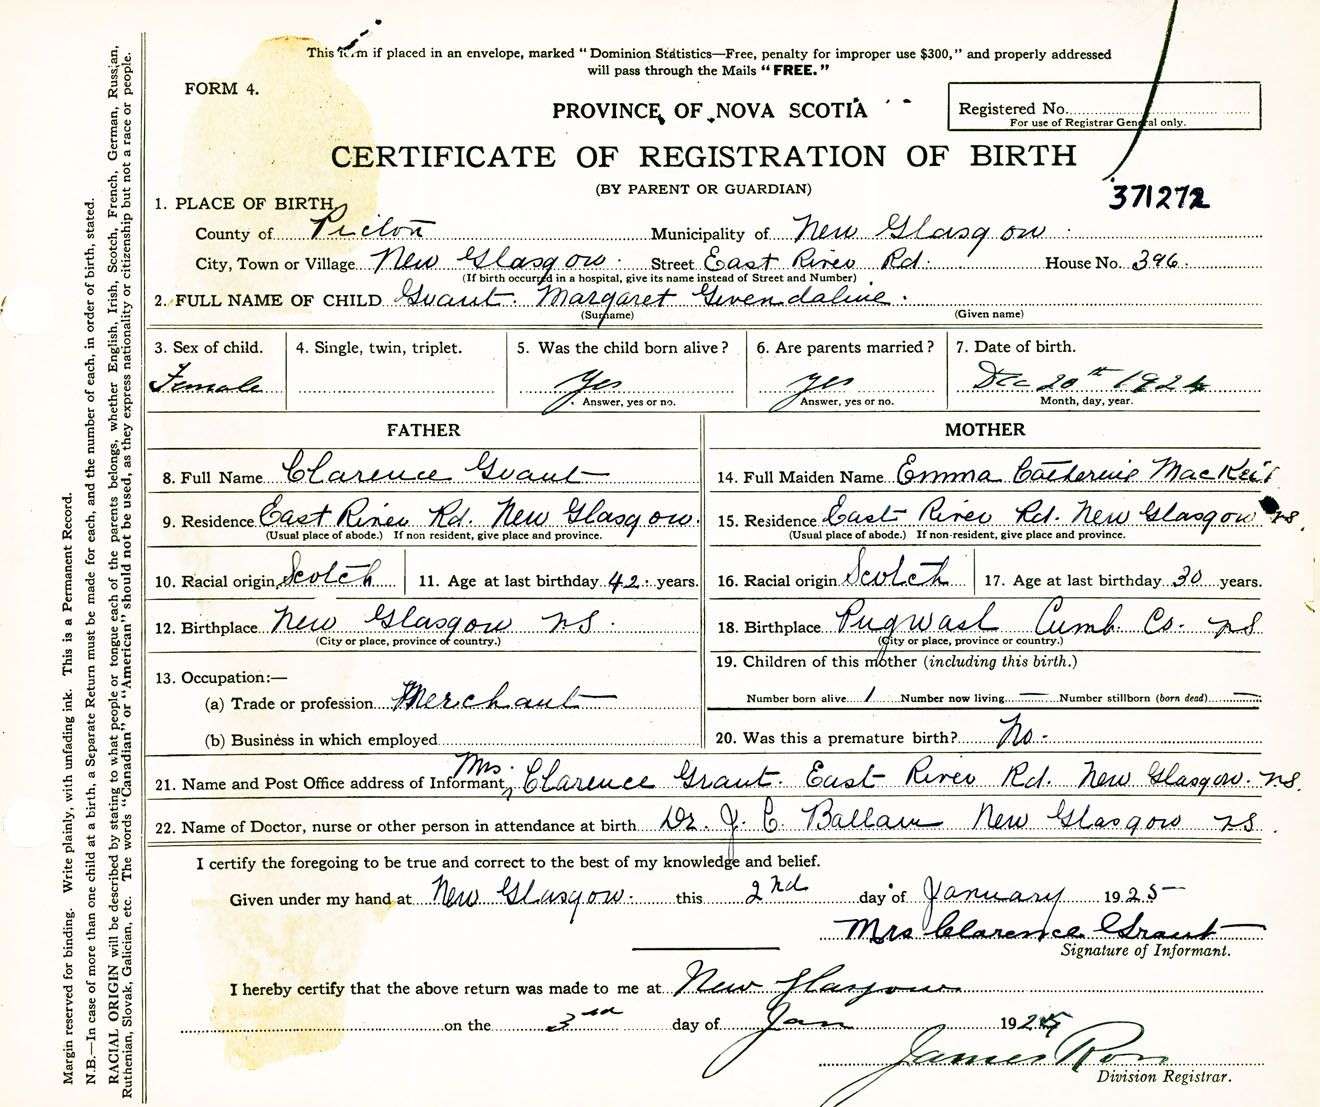 This form if placed in an envelope, marked "Dominion Statistics—Free, penalty for improper use $300," and properly addressed
will pass through the Mails "FREE."
FORM 4.
PROVINCE OF NOVA SCOTIA
Registered No.
For use of Registrar General only.
CERTIFICATE OF REGISTRATION OF BIRTH
(BY PARENT OR GUARDIAN)
371272
1. PLACE OF BIRTH
County of Pictou Municipality of New Glasgow
City, Town or Village New Glasgow. Street East River Rd. House No. 396.
(If birth occurred in a hospital, give its name instead of Street and Number)
2. FULL NAME OF CHILD Grant Margaret Gwendaline.
(Surname) (Given name)
3. Sex of child. 4. Single, twin, triplet. 5. Was the child born alive? 6. Are parents married? 7. Date of birth.
Female Yes Yes Dec 20th 1924
Answer, yes or no. Answer, yes or no. Month, day, year.
FATHER MOTHER
8. Full Name Clarence Grant 14. Full Maiden Name Emma Catherine
9. Residence East River Rd. New Glasgow. 15. Residence East River Rd. New Glasgow NS.
(Usual place of abode.) If non resident, give place and province. (Usual place of abode.) If non-resident, give place and province.
10. Racial origin Scotch 11. Age at last birthday 42 years. 16. Racial origin Scotch 17. Age at last birthday 30 years.
12. Birthplace New Glasgow NS. 18. Birthplace Pugwash Cumb. Co. NS
(City or place, province or country.) (City or place, province or country.)
13. Occupation:— 19. Children of this mother (including this birth.)
(a) Trade or profession Merchant Number born alive 1 Number now living — Number stillborn (born dead) —
(b) Business in which employed 20. Was this a premature birth? No.
21. Name and Post Office address of Informant, Mrs. Clarence Grant. East River Rd. New Glasgow. NS.
22. Name of Doctor, nurse or other person in attendance at birth Dr. J. C. Ballam New Glasgow NS.
I certify the foregoing to be true and correct to the best of my knowledge and belief.
Given under my hand at New Glasgow. this 2nd day of January 1925
Mrs Clarence Grant
Signature of Informant.
I hereby certify that the above return was made to me at New Glasgow
on the 3rd day of Jan 1925
James Ross
Division Registrar.
Margin reserved for binding. Write plainly, with unfading ink. This is a Permanent Record.
N.B.—In case of more than one child at a birth, a Separate Return must be made for each, and the number of each, in order of birth, stated.
RACIAL ORIGIN will be described by stating to what people or tongue each of the parents belongs, whether English, Irish, Scotch, French, German, Russian,
Ruthenian, Slovak, Galician, etc. The words "Canadian" or "American" should not be used, as they express nationality or citizenship but not a race or people.